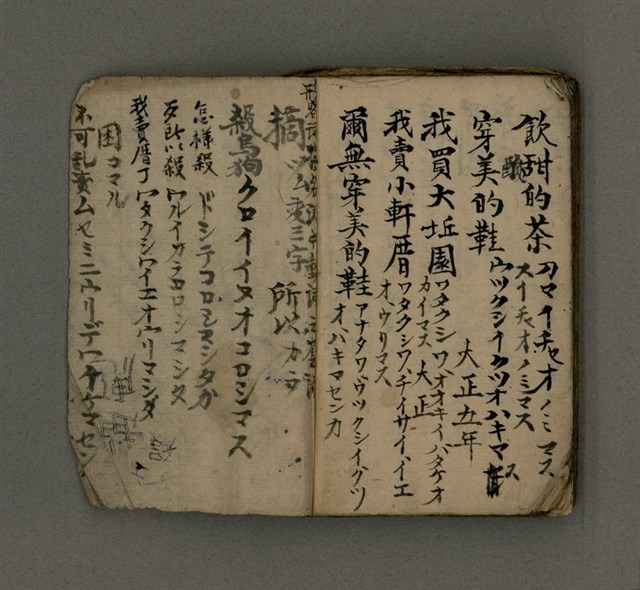 飲甜的茶 アマイチャオノミマス
酸 スイチャオノミマス
穿美的鞋 ウツクシイクツオハキマス
大正五年
我買大坵園 ワタクシワオオキイバタケオ
カイマス 大正
我賣小軒厝 ワタクシワチイサイイエ
オウリマス
爾無穿美的鞋 アナタワウツクシイクツ
オハキマセンカ
摘ツム変三字 所以カラ
殺烏狗 クロイイヌオコロシマス
怎樣殺 ドシテコロシマシタカ
歹所以殺 ワルイカラコロシマシタ
我賣厝了 ワタクシワイエオウリマシタ
困コマル
不可乱賣 ムセミニウリデワナケマセン